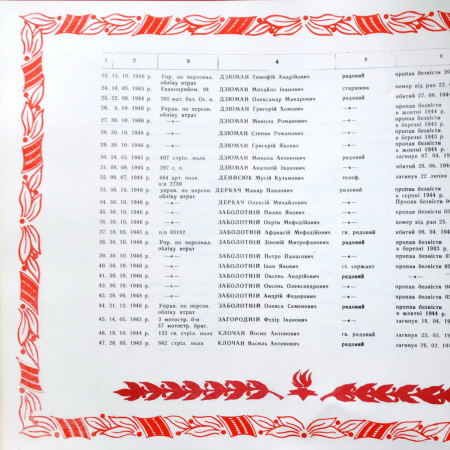 1 2 3 4 5 6
23. 15. 10. 1946 р. Упр. по персонал. ДЗЮМАН Тимофій Андрійович рядовий пропав безвісти
обліку втрат
24. 14. 05. 1945 р. Евакоприйом. 94 ДЗЮМАН Михайло Іванович старшина помер від ран
25. 22. 09. 1944 р. 295 мат. бат. Ос. н. ДЗЮМАН Олександр Макарович рядовий вбитий 27. 08.
26. 3. 10. 1946 р. Управ. по персон. ДЗЮМАН Григорій Хомович —«— пропав безвісти
обліку втрат в жовтні 1944 р.
27. 30. 10. 1946 р. —«— ДЗЮМАН Микола Романович —«— пропав безвісти
в березні 1943 р.
28. 30. 10. 1946 р. —«— ДЗЮМАН Степан Романович —«— пропав безвісти
в березні 1943 р.
29. 30. 10. 1946 р. —«— ДЗЮМАН Григорій Якович —«— пропав безвісти
в жовтні 1944 р.
30. 24. 05. 1945 р. 407 стріл. полк ДЗЮМАН Микола Антонович рядовий загинув 07. 04.
31. 09. 08. 1944 р. 297 с. п. ДЗЮМАН Анатолій Іванович —«— вбитий 28. 06.
32. 06. 07. 1944 р. 684 арт. полк ДЕНИСЮК Мусій Кузьмович телеф. загинув 22 липня
п/п 2739
33. 30. 10. 1946 р. управ. по персон. ДЕРКАЧ Макар Павлович рядовий пропав безвісти
обліку втрат в серпні 1944 р.
34. 30. 10. 1946 р. —«— ДЕРКАЧ Олексій Михайлович —«— Пропав безвісти
35. 30. 10. 1946 р. —«— ЗАБОЛОТНІЙ Пилип Якович —«— пропав безвісти
36. 30. 10. 1946 р. —«— ЗАБОЛОТНІЙ Охрім Мефодійович —«— помер від ран
37. 18. 05. 1945 р. п/п 03182 ЗАБОЛОТНІЙ Афанасій Мефодійович гв. рядовий вбитий 08. 04.
38. 30. 10. 1946 р. Упр. по персонал. ЗАБОЛОТНІЙ Зіновій Митрофанович рядовий пропав безвісти
обліку втрат в березні 1943 р.
39. 30. 10. 1946 р. —«— ЗАБОЛОТНІЙ Петро Панасович —«— пропав безвісти
40. 30. 10. 1946 р. —«— ЗАБОЛОТНІЙ Іван Якович ст. сержант пропав безвісти
41. 28. 10. 1946 р. —«— ЗАБОЛОТНІЙ Оксень Андрійович рядовий —«—
42. 30. 10. 1946 р. —«— ЗАБОЛОТНІЙ Оксень Олександрович —«— пропав безвісти
43. 28. 10. 1946 р. —«— ЗАБОЛОТНІЙ Андрій Федорович —«— пропав безвісти
44. 21. 12. 1946 р. Управ. по персон. ЗАБОЛОТНІЙ Олекса Семенович рядовий пропав безвісти
обліку втрат в жовтні 1944 р.
45. 14. 05. 1945 р. 3 мотострл. б-н ЗАГОРОДНІЙ Федір Іванович —«— загинув 18. 04.
57 мотострл. бриг.
46. 19. 10. 1944 р. 132 гв. стріл. полк КЛОЧАН Йосип Антонович гв. рядовий загинув 23. 05.
47. 20. 03. 1945 р. 842 стріл. полк КЛОЧАН Василь Антонович рядовий загинув 26. 02.